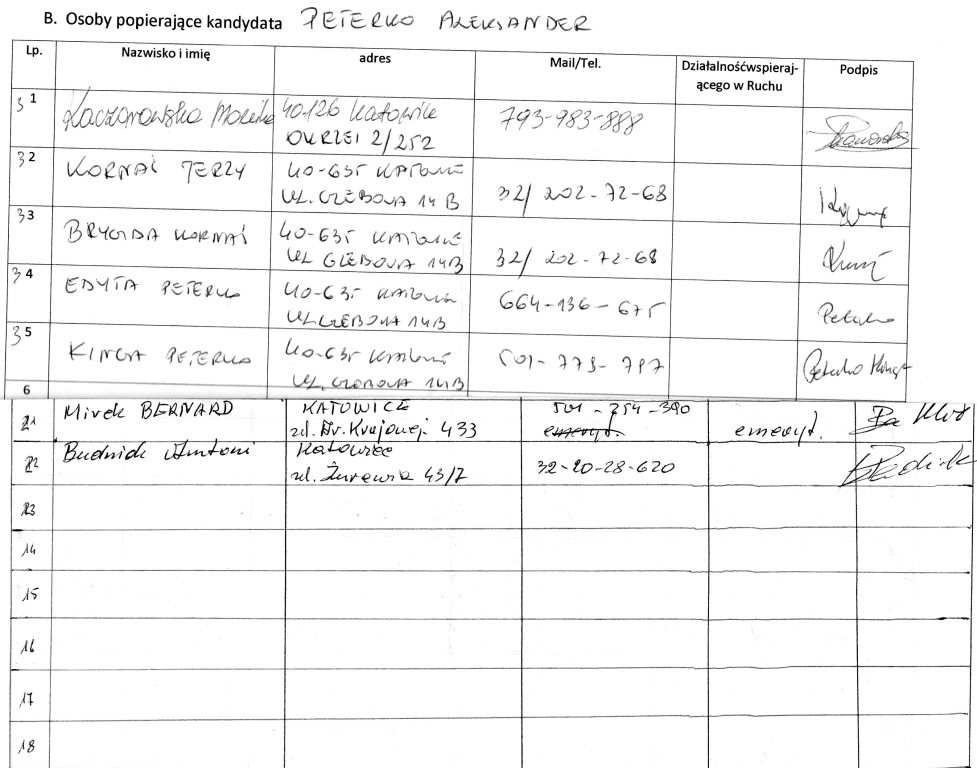 B. Osoby popierające kandydata PETERKO ALEKSANDER
Lp. Nazwisko i imię adres Mail/Tel. Działalnośćwspieraj-ącego w Ruchu Podpis
31 Kaczorowska Monika 40126 Katowice 793-983-888
OKRZEI 2/252
32 KORNAŚ JERZY 40-635 KATOWICE
UL. GLEBOWA 14B 32/ 202-72-68
33 BRYGIDA KORNAŚ 40-635 KATOWICE
UL GLEBOWA 14B 32/ 202-72-68
34 EDYTA PETERKO 40-635 KATOWICE 664-136-675
UL. GLEBOWA 14B Peterko
35 KINGA PETERKO 40-635 KATOWICE 501-773-797 Peterko Kinga
UL. GLEBOWA 14B
6
21 Mirek BERNARD KATOWICE 501-254-390
ul. Ar. Krajowej 433 emeryt. emeryt.
22 Budnik Antoni Katowice
ul. Żurawia 43/7 32-20-28-620
13
14
15
16
17
18